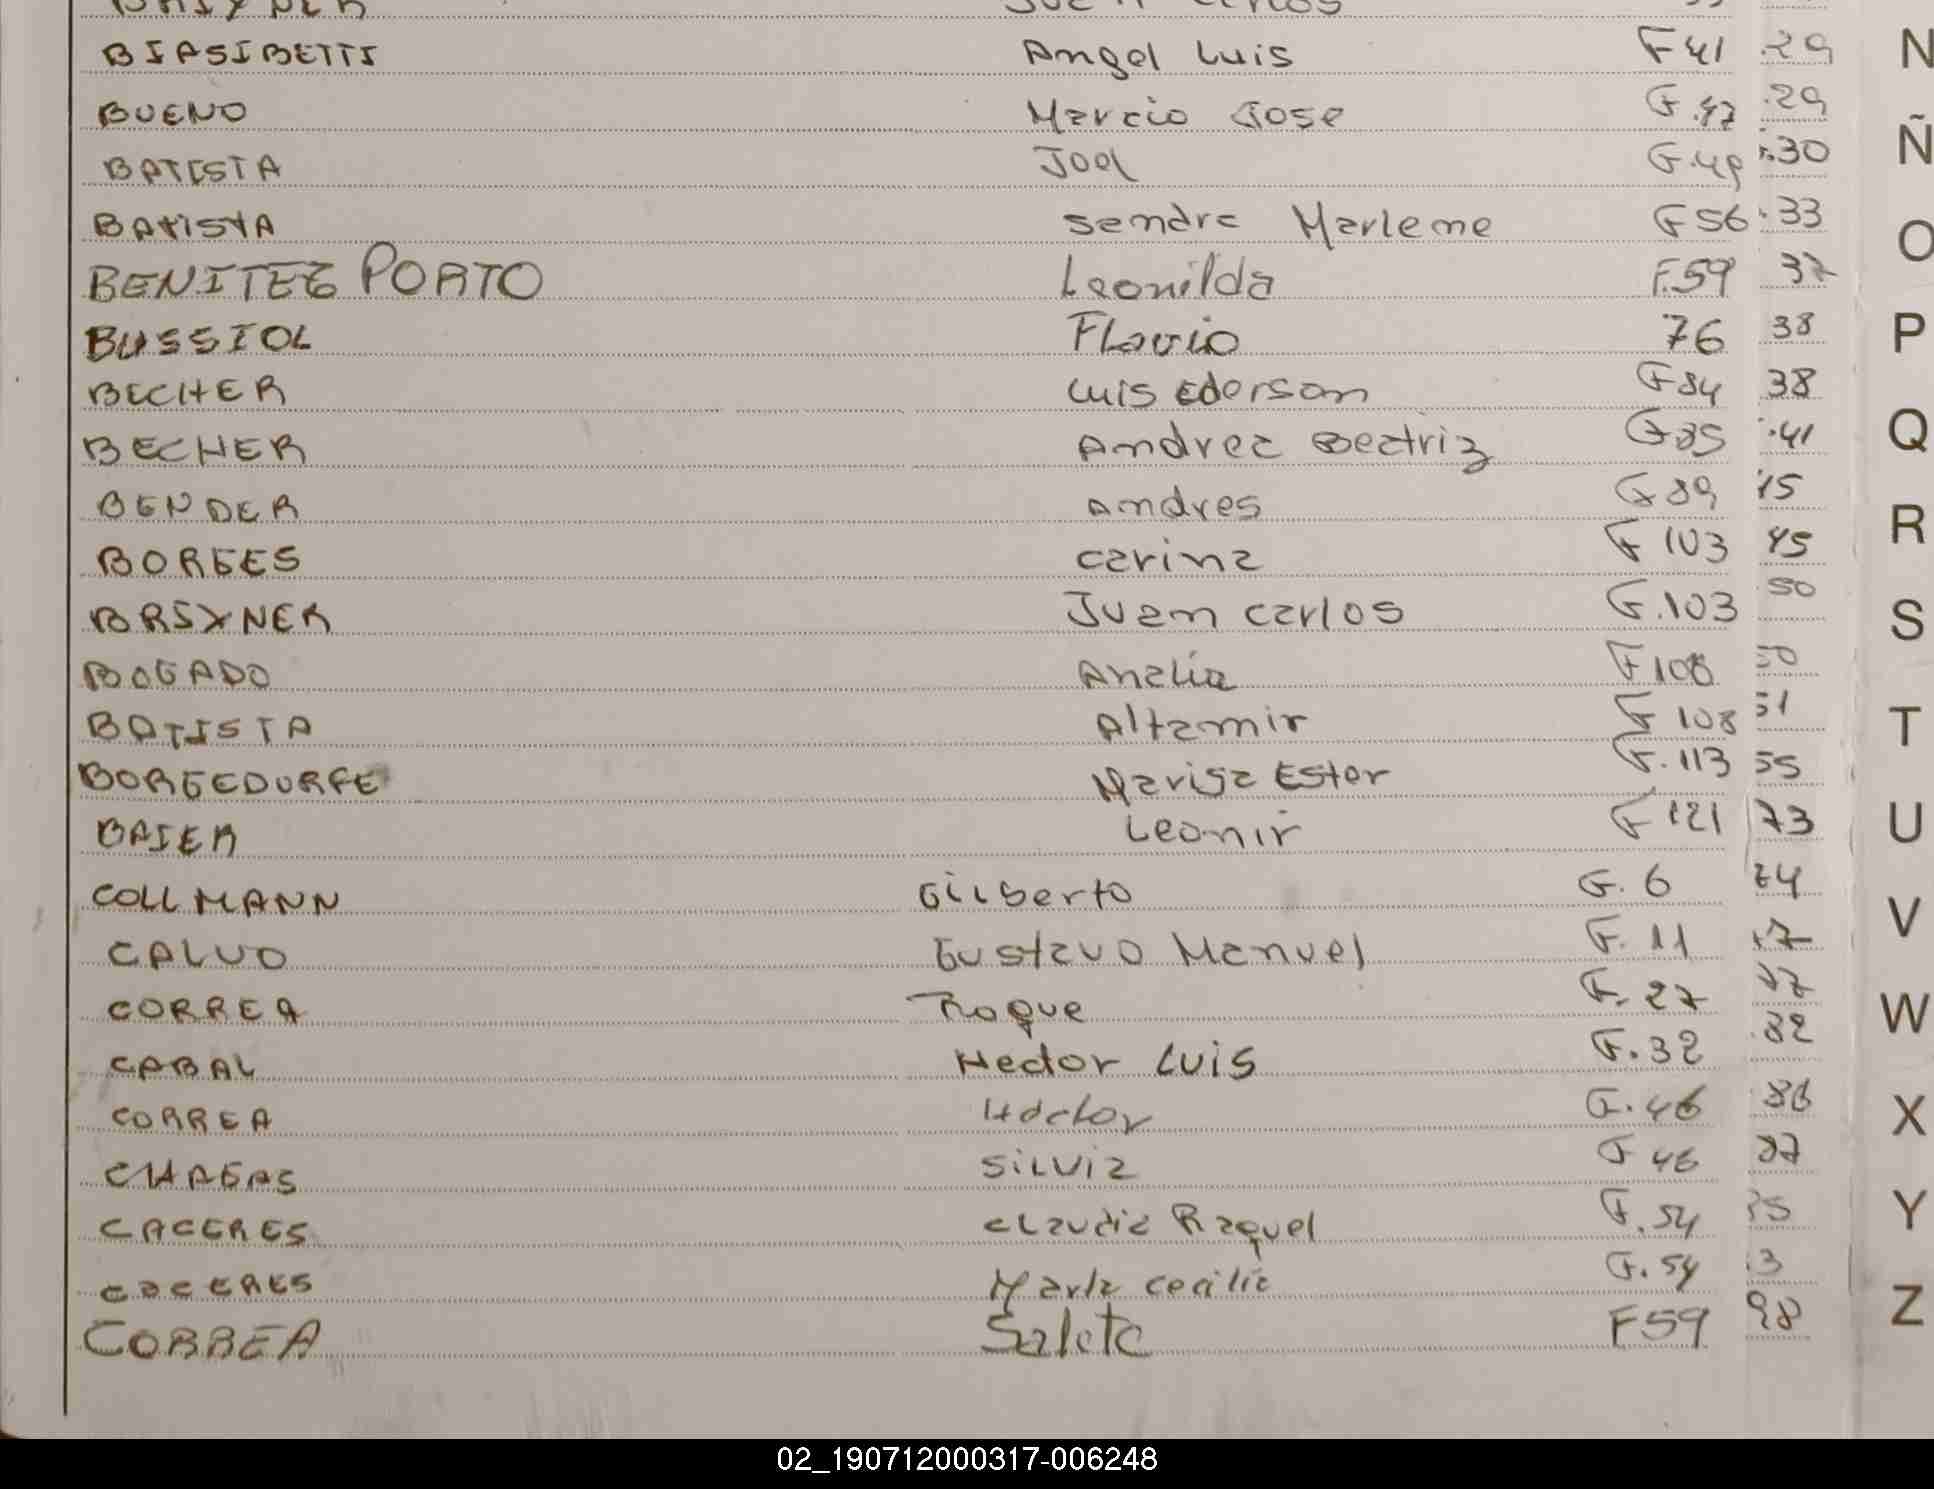 BIASIBETTI Angel Luis F 41 29
BUENO Marcio Jose F.47 29
BATISTA Joel F.49 30
BATISTA Sandra Marlene F 56 33
BENITEZ PORTO Leonilda F.59 37
BUSSIOL Flavio 76 38
BECHER Luis Ederson F 84 38
BECHER Andrea Beatriz F 85 41
BENDER Andres F 89 45
BORGES Carina F 103 45
BRIXNER Juan Carlos F.103 50
BOGADO Analia F 108 50
BATISTA Altamir F 108 51
BORGEDURFE Marisa Ester F.113 55
BAIER Leonir F 121 73
COLLMANN Gilberto F. 6 74
CALVO Gustavo Manuel F. 11 77
CORREA Roque F. 27 77
CABAL Hector Luis F.32 82
CORREA Hector F.46 86
CHAGAS Silvia F 46 87
CACERES Claudia Raquel F.54
CACERES Marta Cecilia F.54 3
CORREA Salete F 59 98
N
Ñ
O
P
Q
R
S
T
U
V
W
X
Y
Z
02_190712000317-006248